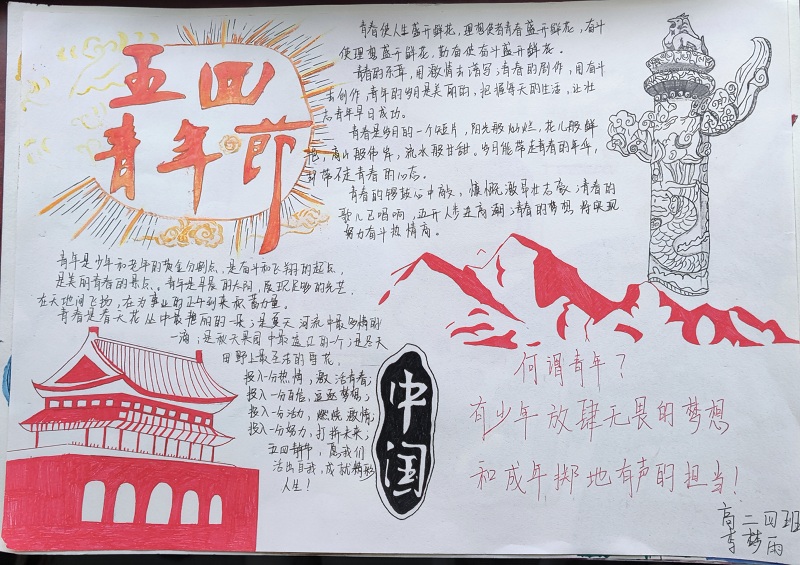 五四
青年节
青春使人生盛开鲜花,理想使者青春盛开鲜花,奋斗
使理想盛开鲜花,勤奋使奋斗盛开鲜花。
青春的乐章,用激情去谱写;青春的剧作,用奋斗
去创作,青年的岁月是美丽的,把握每天的生活,让壮
志青年早日成功。
青春是岁月的一个短片,阳光般灿烂,花儿般鲜
艳,高山般伟岸,流水般甘甜。岁月能带走青春的年华,
却带不走青春的心态。
青春的锣鼓心中敲,慷慨激昂壮志豪;青春的
歌儿已唱响,迈开人步走高潮;青春的梦想将实现
努力奋斗热情高。
青年是少年和老年的黄金分割点,是奋斗和飞翔的起点,
是美丽的青春的景点。青年是早晨的太阳,展现足够的光芒,
在天地间飞扬,在为事业的正午到来积蓄力量。
青春是春天花丛中最艳丽的一朵;是夏天河流中最多情的
一湾;是秋天果园中最盛的一个;是冬天
田野上最圣洁的雪花。
投入一分热情,激活青春;
投入一分自信,逐梦想;
投入一分活力,燃烧激情;
投入一分努力,打拼未来;
五四,愿我们
活出自我,成就精彩
人生!
中国
何谓青年?
有少年放肆无畏的梦想
和成年掷地有声的担当!
高二四班
李梦雨